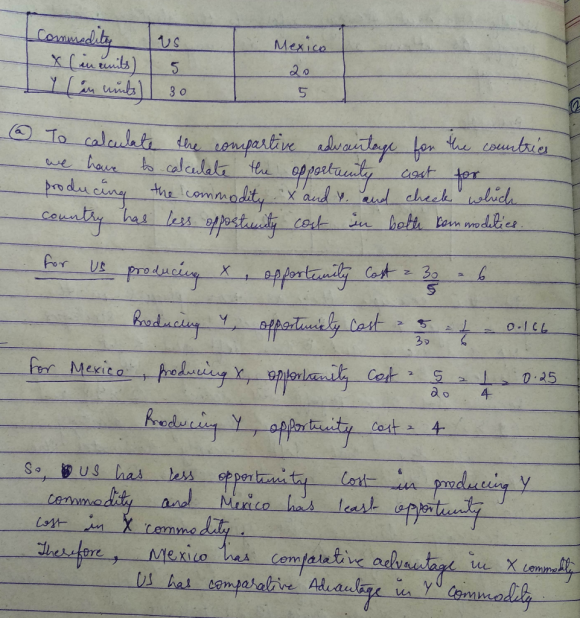 Commodity US Mexico
X (in units) 5 20
Y (in units) 30 5
(a) To calculate the compartive advantage for the countries
we have to calculate the opportunity cost for
producing the commodity X and Y. and check which
country has less opportunity cost in both commodities.
For US producing X, opportunity cost = 30/5 = 6
Producing Y, opportunity cost = 5/30 = 1/6 = 0.166
For Mexico, Producing X, opportunity cost = 5/20 = 1/4 = 0.25
Producing Y, opportunity cost = 4
So, US has less opportunity cost in producing Y
commodity and Mexico has least opportunity
cost in X commodity.
Therefore, Mexico has comparative advantage in X commodity
US has comparative Advantage in Y commodity.